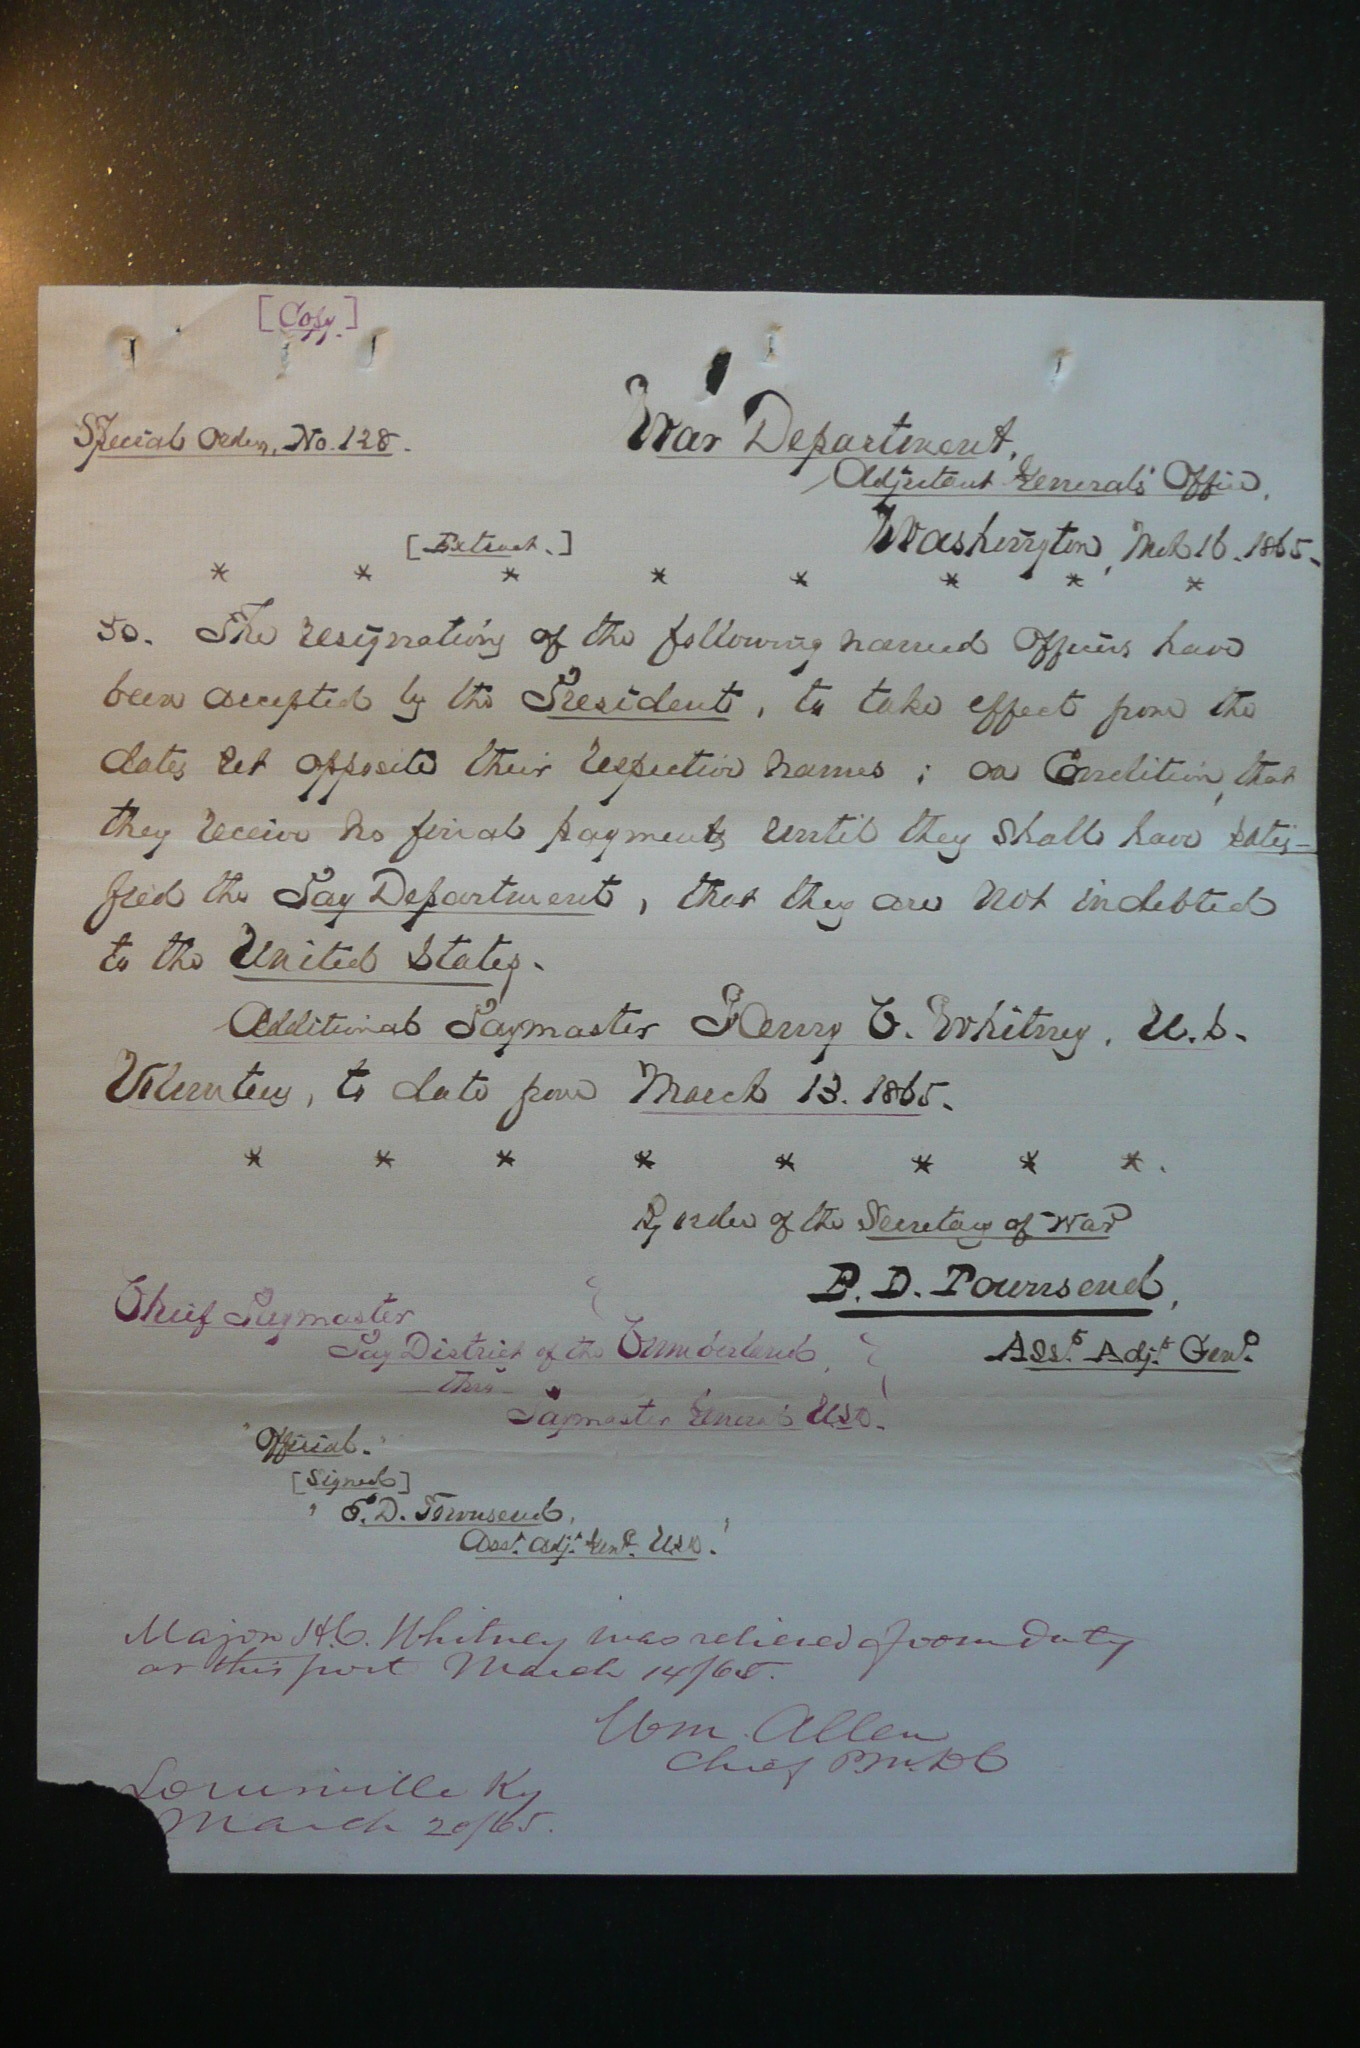 [Copy.]
Special Orders, No. 128.
War Department,
Adjutant General's Office,
Washington, Mch 16. 1865.
[Extract.]
* * * * * * * *
50. The resignations of the following named Officers have
been accepted by the President, to take effect from the
dates set opposite their respective names; on Condition, that
they receive no final payments until they shall have satis-
fied the Pay Department, that they are not indebted
to the United States.
Additional Paymaster Henry C. Whitney, U.S.
Volunteers, to date from March 13. 1865.
* * * * * * * *.
By order of the Secretary of War
E. D. Townsend,
Asst. Adjt. Genl.
Chief Paymaster
Pay District of the Cumberland,
thro
Paymaster General USA.
"Official."
[Signed]
" E. D. Townsend,
Asst. Adjt. Genl. USA."
Major H.C. Whitney was relieved from duty
at this post March 14/65.
Wm. Allen
Chief PM. DC
Louisville Ky
March 20/65.